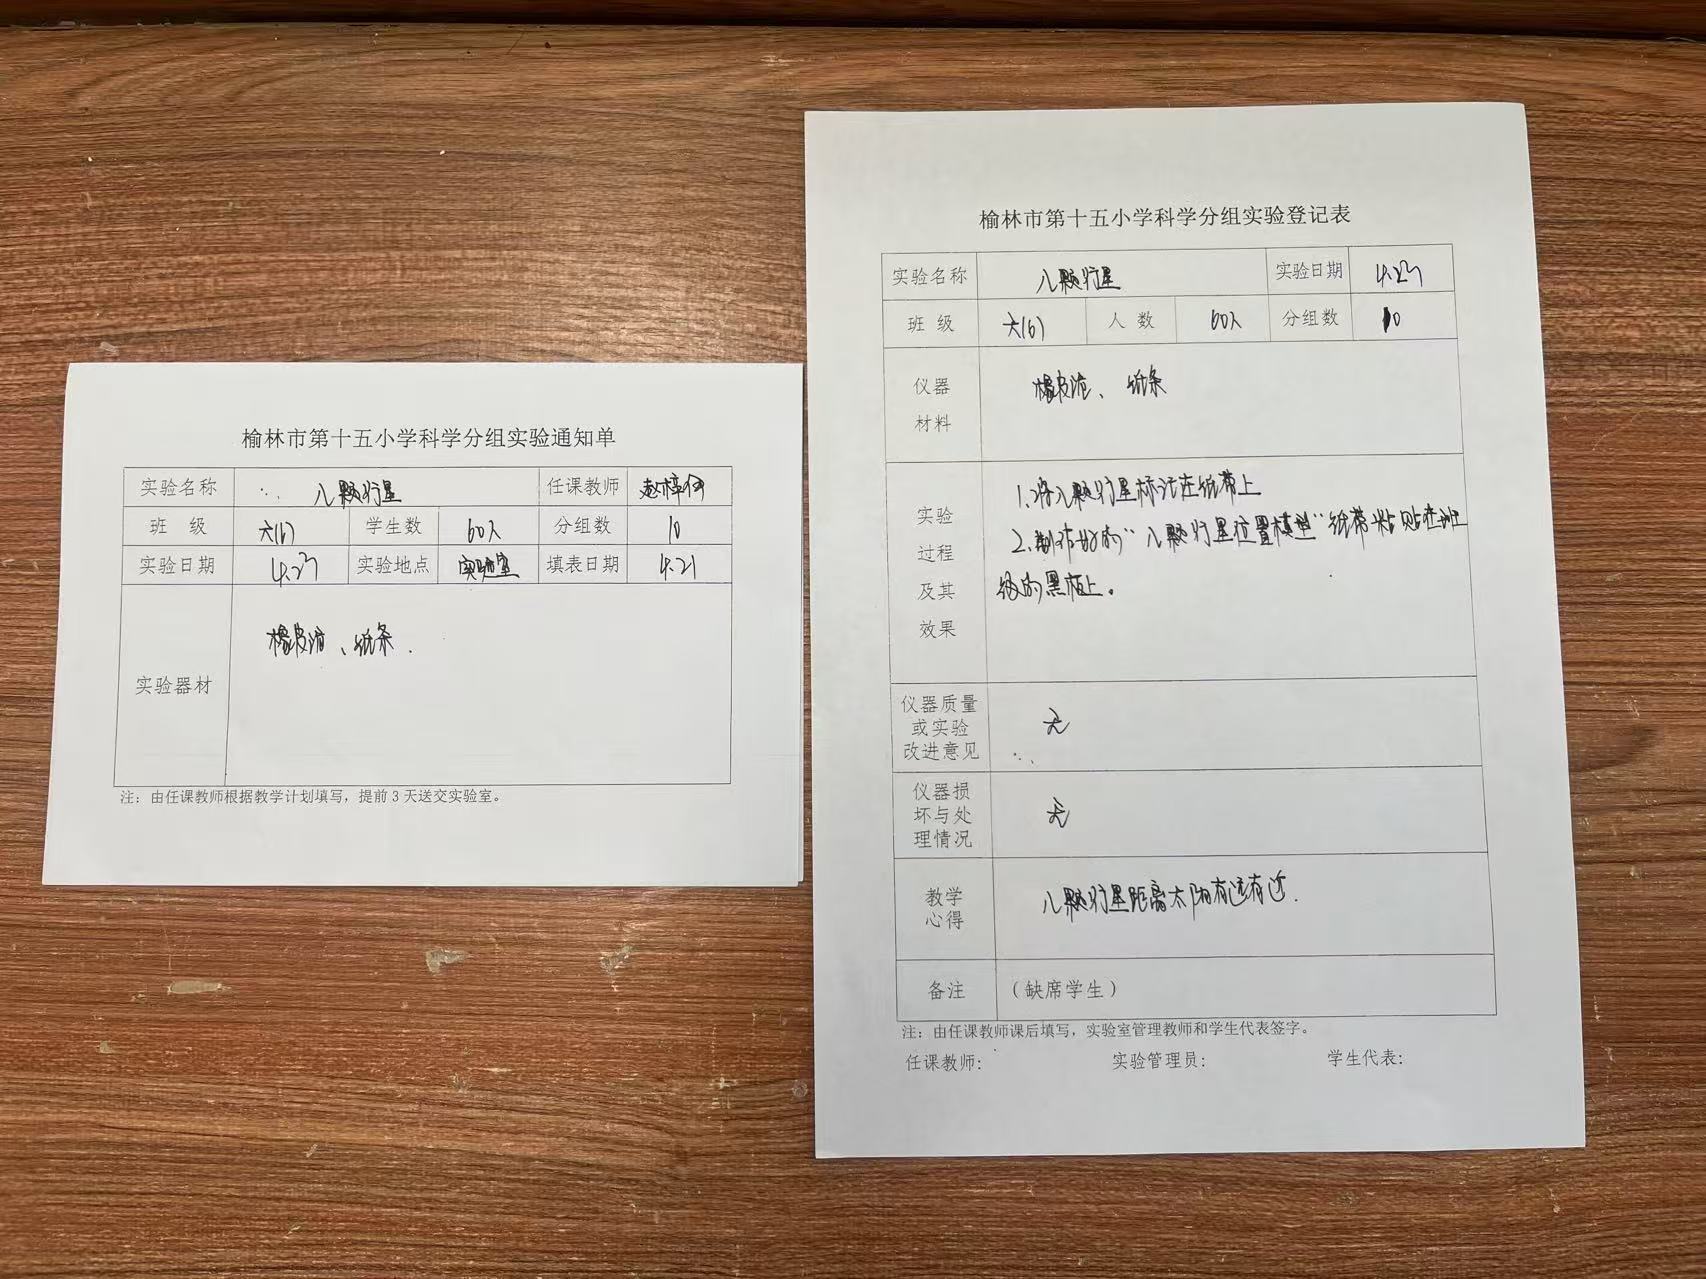 榆林市第十五小学科学分组实验通知单
实验名称 八颗行星 任课教师
班 级 六(6) 学生数 60人 分组数 10
实验日期 4.23 实验地点 实验室 填表日期 4.21
实验器材 橡皮泥、纸条.
注：由任课教师根据教学计划填写，提前3天送交实验室。
榆林市第十五小学科学分组实验登记表
实验名称 八颗行星 实验日期 4.23
班 级 六(6) 人 数 60人 分组数 10
仪器
材料
橡皮泥、纸条
实验
过程
及其
效果
1.将八颗行星标注在纸带上
2.制作好的"八颗行星位置模型"纸带粘贴在班
级的黑板上。
仪器质量
或实验
改进意见
无
仪器损
坏与处
理情况
无
教学
心得
八颗行星距离太阳有远有近.
备注 （缺席学生）
注：由任课教师课后填写，实验室管理教师和学生代表签字。
任课教师： 实验管理员： 学生代表：